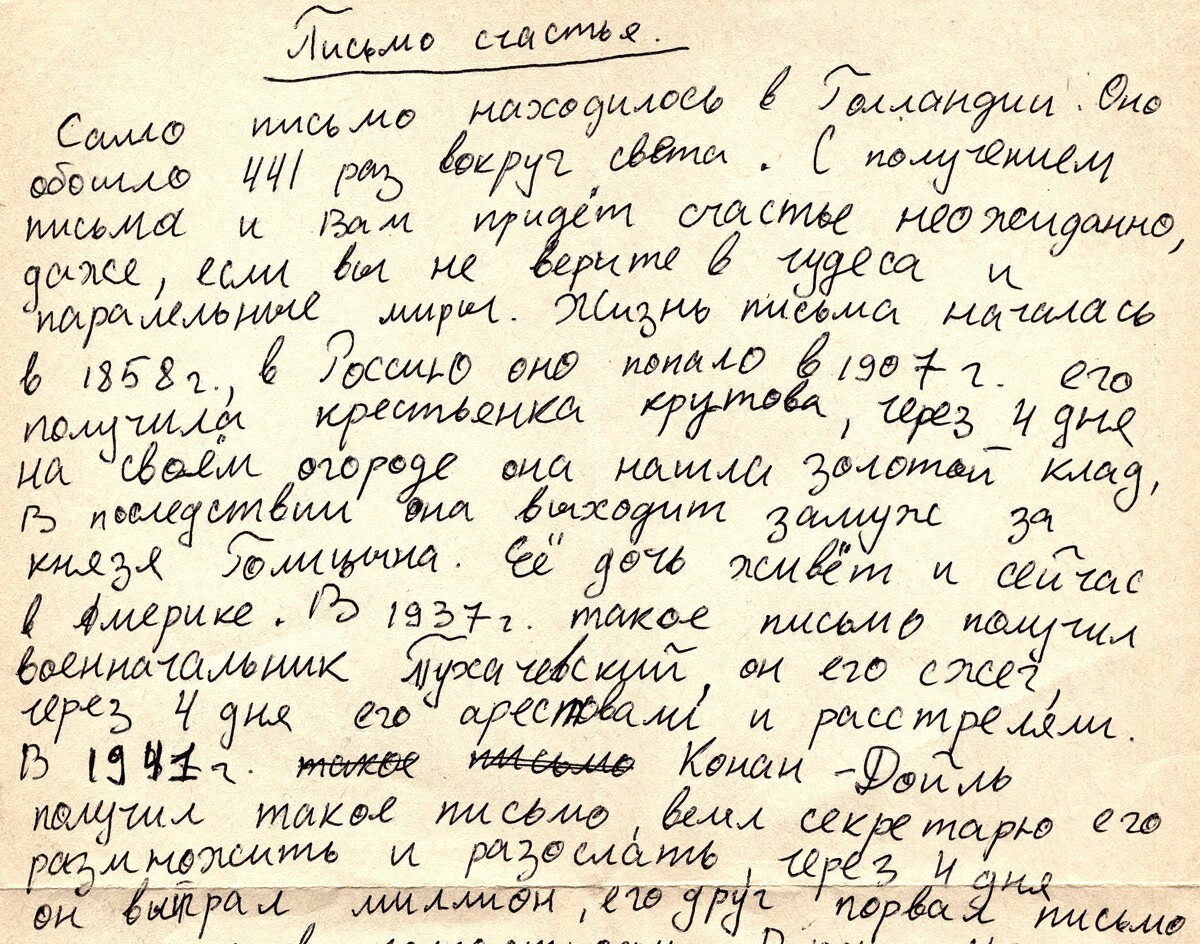 Письмо счастья.
Само письмо находилось в Голландии. Оно
обошло 441 раз вокруг света. С получением
письма и Вам придёт счастье неожиданно,
даже, если вы не верите в чудеса и
паралельные миры. Жизнь письма началась
в 1858г., в Россию оно попало в 1907г. его
получила крестьенка крутова, через 4 дня
на своём огороде она нашла золотой клад,
В последствии она выходит замуж за
князя Голицына. Её дочь живёт и сейчас
в Америке. В 1937г. такое письмо получил
военначальник Тухачевский, он его сжег,
через 4 дня его арестовали и расстреляли.
В 1941г. такое письмо Конан-Дойль
получил такое письмо, велел секретарю его
размножить и разослать, через 4 дня
он выграл миллион, его друг порвал письмо